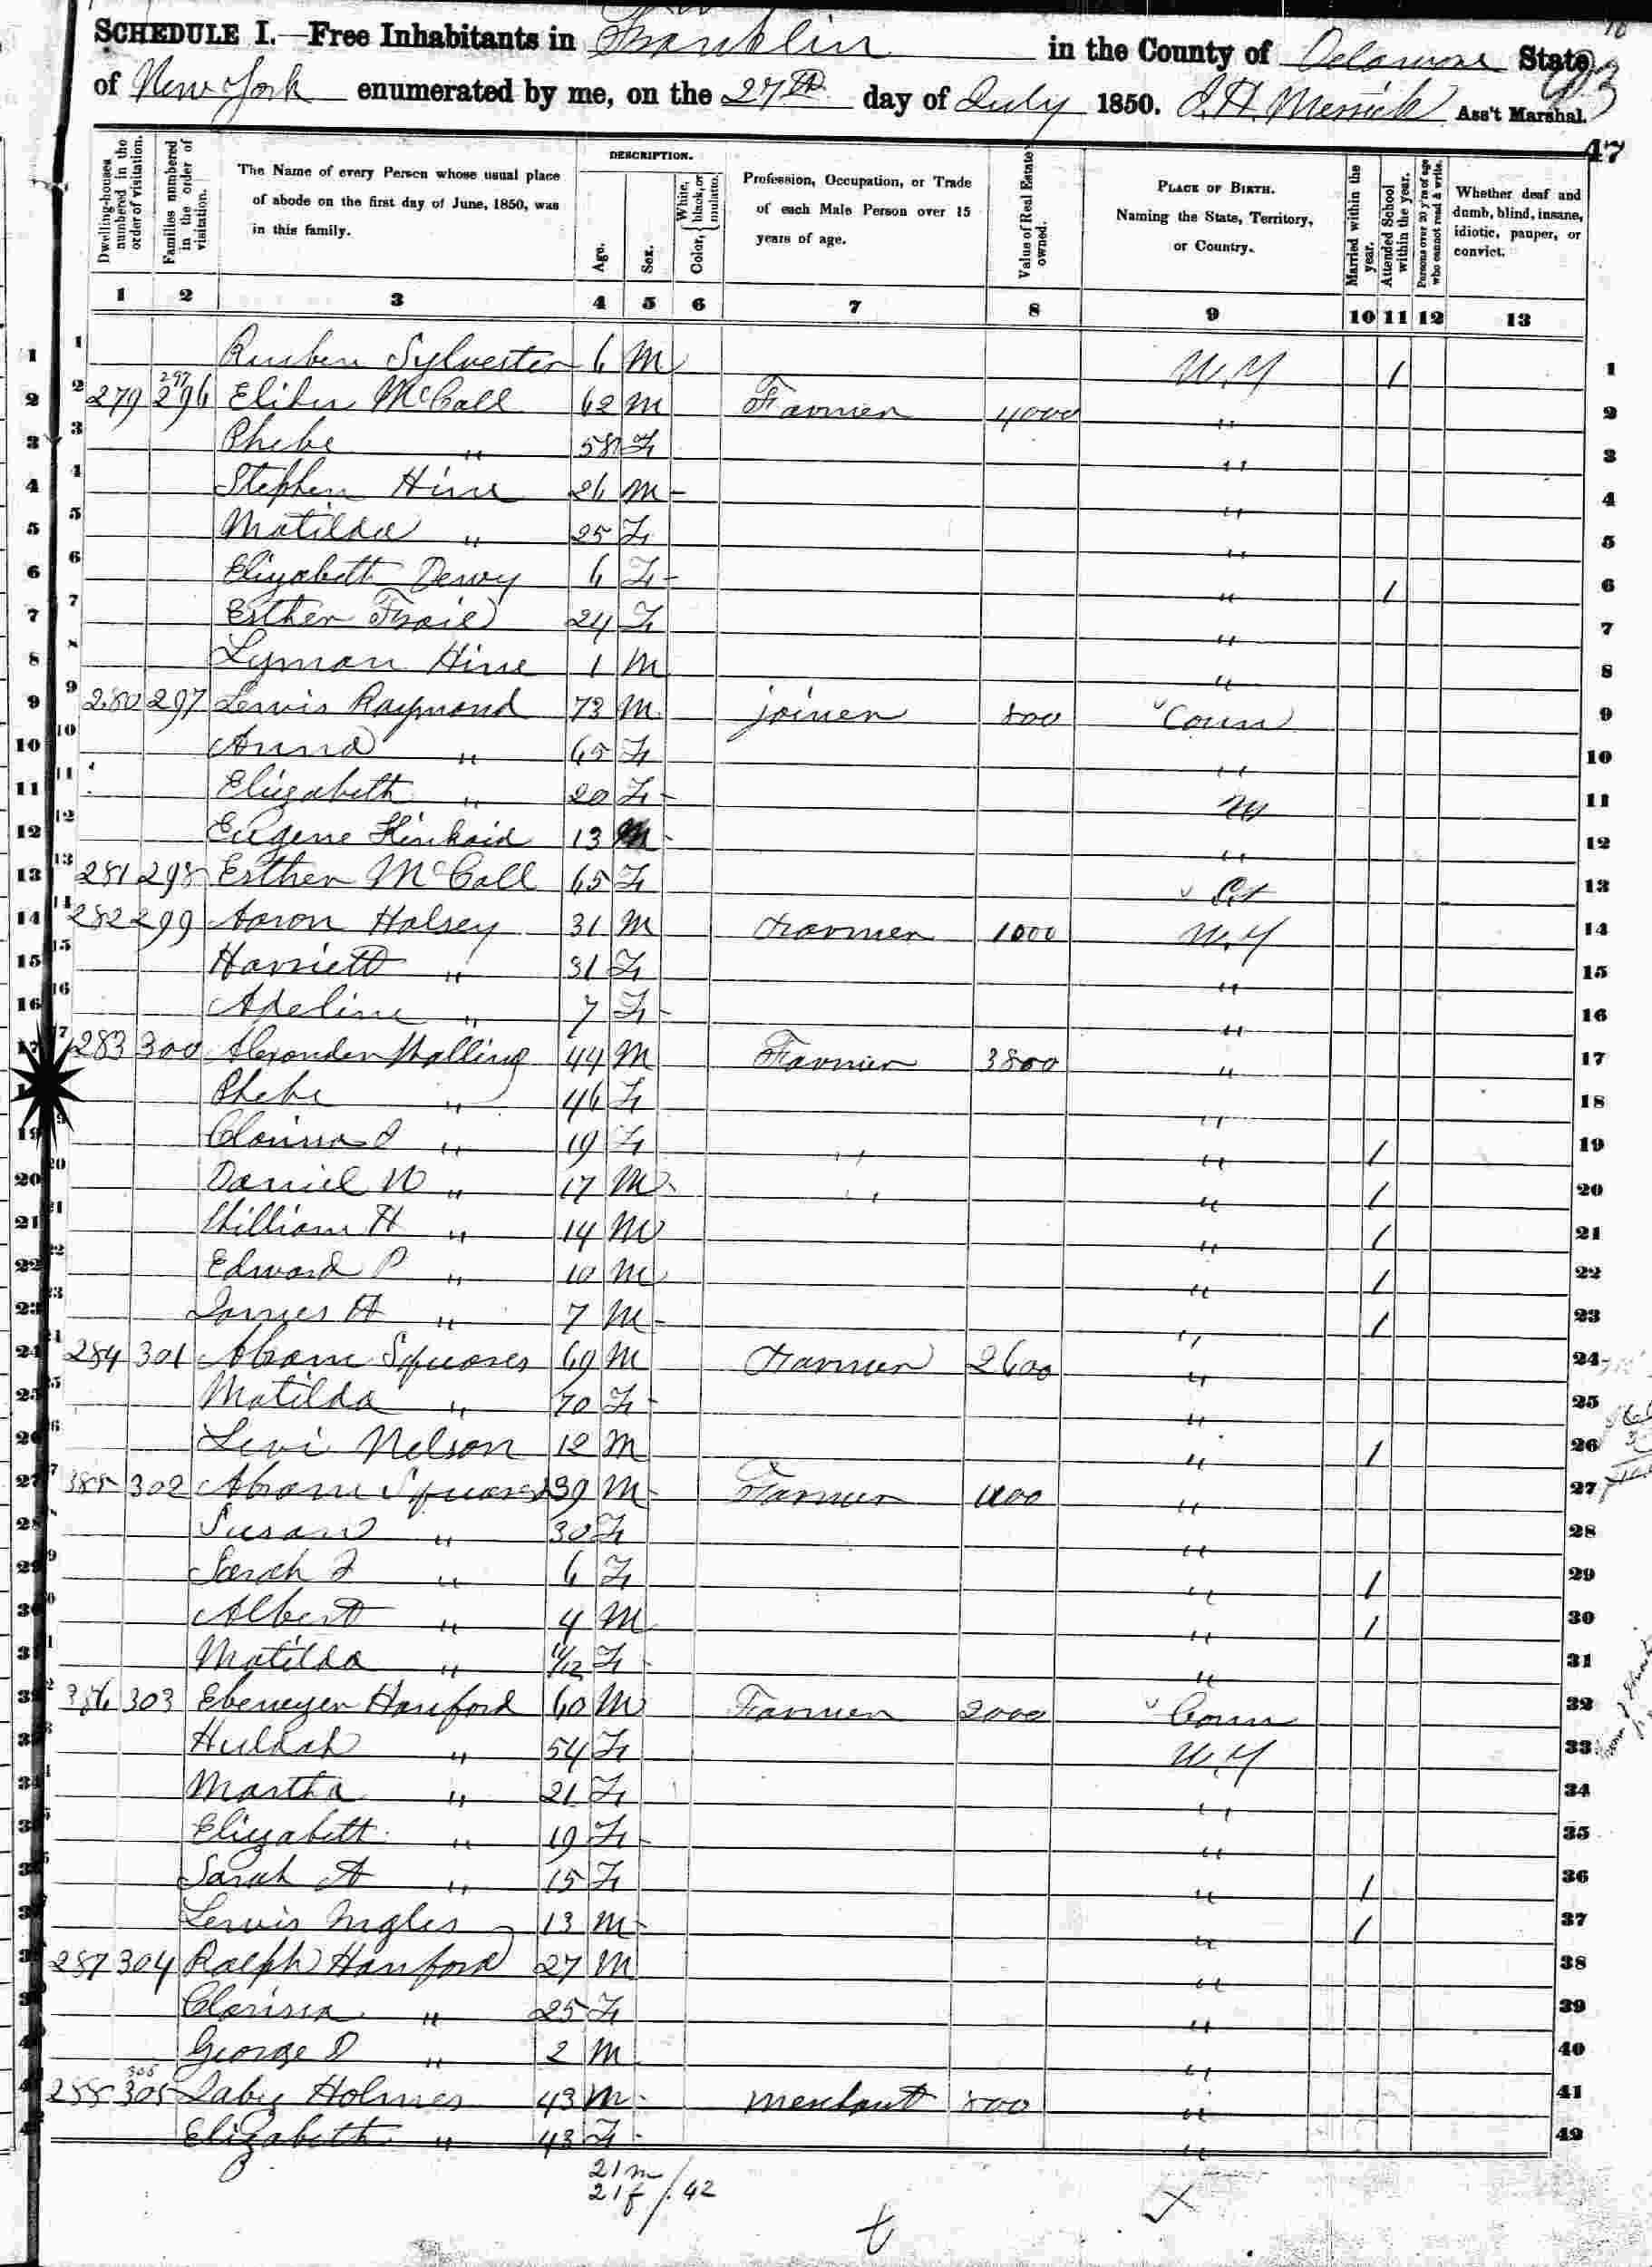 SCHEDULE I.—Free Inhabitants in Franklin in the County of Delaware State
of New York enumerated by me, on the 27th day of July 1850. J.H. Merrick Ass't Marshal.
47
Dwelling-houses numbered in the order of visitation.
Families numbered in the order of visitation.
The Name of every Person whose usual place of abode on the first day of June, 1850, was in this family.
DESCRIPTION.
Age.
Sex.
Color, { White, black, or mulatto.
Profession, Occupation, or Trade of each Male Person over 15 years of age.
Value of Real Estate owned.
PLACE OF BIRTH. Naming the State, Territory, or Country.
Married within the year.
Attended School within the year.
Persons over 20 y'rs of age who cannot read & write.
Whether deaf and dumb, blind, insane, idiotic, pauper, or convict.
1 2 3 4 5 6 7 8 9 10 11 12 13
1 Reuben Sylvester 6 M N.Y / 1
2 279 296 Elihu McCall 62 M Farmer 4000 " 2
3 Phebe " 58 F " 3
4 Stephen Hine 26 M " 4
5 Matilda " 25 F " 5
6 Elizabeth Dewy 6 F " / 6
7 Esther 24 F " 7
8 Lyman Hine 1 M " 8
9 280 297 Lewis Raymond 73 M joiner 800 Conn 9
10 Anna " 65 F " 10
11 Elizabeth " 20 F NY 11
12 Eugene 13 M " 12
13 281 298 Esther McCall 65 F Ct 13
14 282 299 Aaron Halsey 31 M Farmer 1000 N.Y 14
15 Harriett " 31 F " 15
16 Adeline " 7 F " 16
17 283 300 Alexander Walling 44 M Farmer 3800 " 17
18 Phebe " 46 F " 18
19 Clarissa J " 19 F " " / 19
20 Daniel W " 17 M " " / 20
21 William H " 14 M " / 21
22 Edward P " 10 M " / 22
23 James H " 7 M " / 23
24 284 301 Abram Squares 69 M Farmer 2600 " 24
25 Matilda " 70 F " 25
26 Levi Nelson 12 M " / 26
27 385 302 Abram Squares 39 M Farmer " 27
28 Susan " 30 F " 28
29 Sarah J " 6 F " / 29
30 Albert " 4 M " / 30
31 Matilda " 11/12 F " 31
32 386 303 Ebenezer Hanford 60 M Farmer 2000 Conn 32
33 Huldah " 54 F N.Y 33
34 Martha " 21 F " 34
35 Elizabeth " 19 F " 35
36 Sarah A " 15 F " / 36
37 Lewis Ingles 13 M " / 37
38 287 304 Ralph Hanford 27 M " 38
39 Clarissa " 25 F " 39
40 George D " 2 M " 40
41 288 305 Holmes 43 M Merchant 800 " 41
Elizabeth " 43 F " 42
21 m
21 f / 42